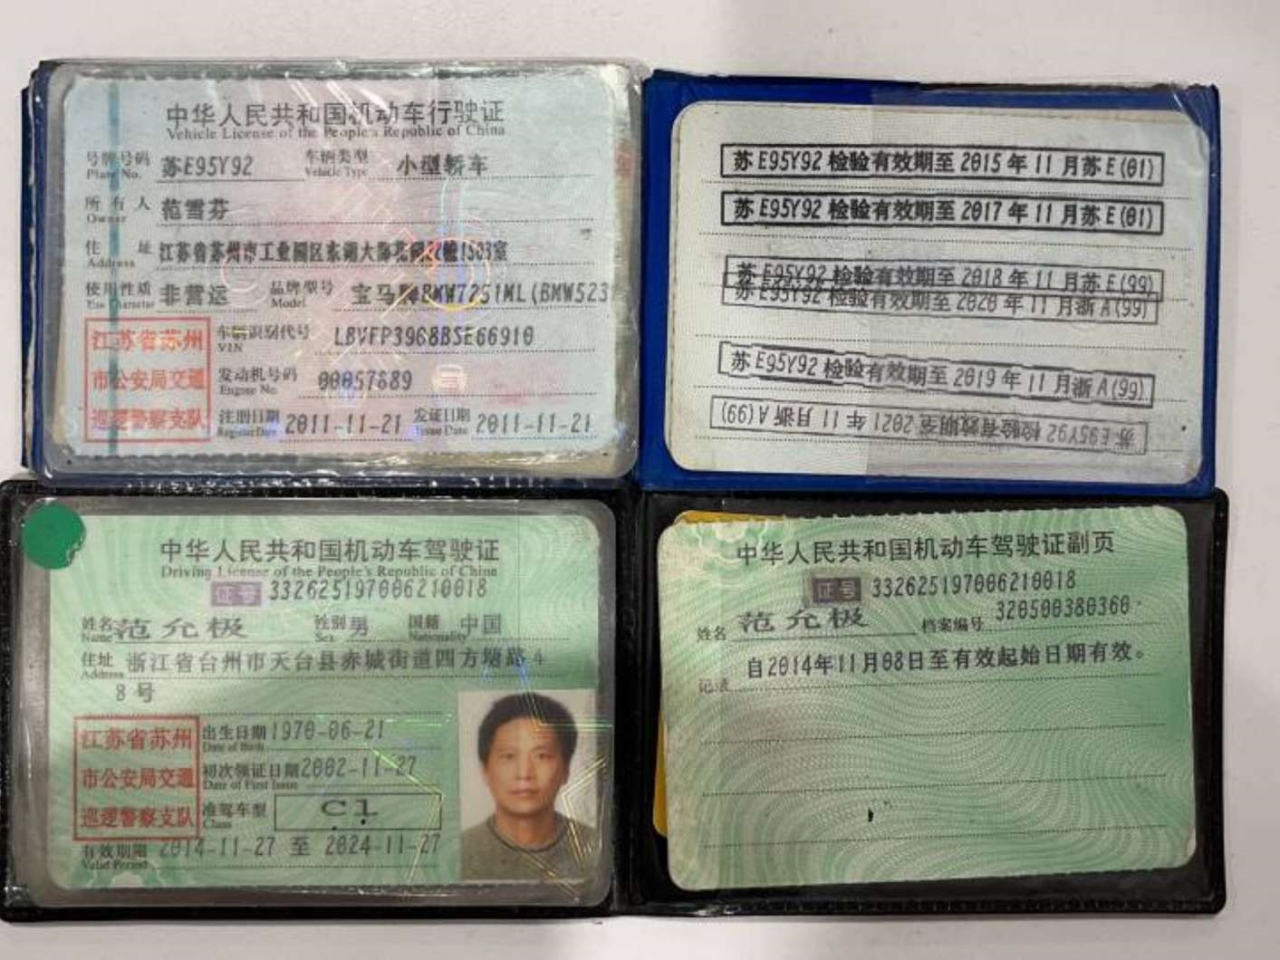 中华人民共和国机动车行驶证
Vehicle License of the People's Republic of China
号牌号码 Plate No. 苏E95Y92 车辆类型 Vehicle Type 小型轿车
所有人 Owner 范雪芬
住址 Address 江苏省苏州市工业园区东湖大郡花园 1503室
使用性质 Use Character 非营运 品牌型号 Model 宝马牌BMW7251ML(BMW523
江苏省苏州
市公安局交通
巡逻警察支队
车辆识别代号 VIN LBVFP3968BSE66910
发动机号码 Engine No. 00057889
注册日期 Register Date 2011-11-21 发证日期 Issue Date 2011-11-21
苏E95Y92 检验有效期至 2015 年 11 月苏E(01)
苏E95Y92 检验有效期至 2017 年 11 月苏E(01)
苏E95Y92 检验有效期至 2018 年 11 月苏E(99)
苏E95Y92 检验有效期至 2020 年 11 月浙A(99)
苏E95Y92 检验有效期至 2019 年 11 月浙A(99)
苏E95Y92 检验有效期至 2021 年 11 月浙A(99)
中华人民共和国机动车驾驶证
Driving License of the People's Republic of China
证号 332625197006210018
姓名 Name 范允极 性别 Sex 男 国籍 Nationality 中国
住址 Address 浙江省台州市天台县赤城街道四方塘路4
8号
江苏省苏州
市公安局交通
巡逻警察支队
出生日期 Date of Birth 1970-06-21
初次领证日期 Date of First Issue 2002-11-27
准驾车型 Class C1
有效期限 Valid Period 2014-11-27 至 2024-11-27
中华人民共和国机动车驾驶证副页
证号 332625197006210018
姓名 范允极 档案编号 320500380360
记录 自2014年11月08日至有效起始日期有效。